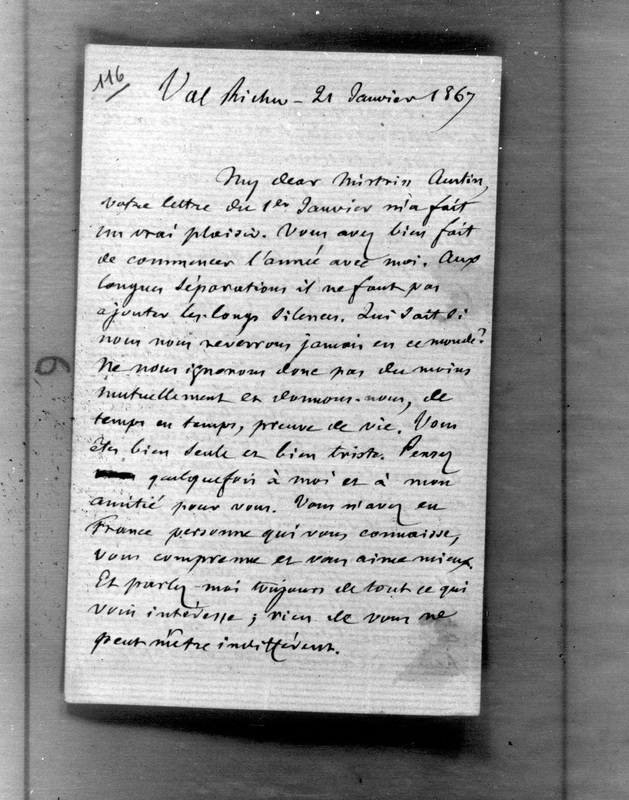 116
Val Richer - 21 Janvier 1867
My dear Mistriss Austin,
votre lettre du 1er Janvier m'a fait
un vrai plaisir. Vous avez bien fait
de commencer l'année avec moi. Aux
longues séparations il ne faut pas
ajouter les longs silences. Qui sait si
nous nous reverrons jamais en ce monde?
Ne nous ignorons donc pas du moins
mutuellement et donnons-nous, de
temps en temps, preuve de vie. Vous
êtes bien seule et bien triste. Pensez
quelquefois à moi et à mon
amitié pour vous. Vous n'avez en
France personne qui vous connaisse,
vous comprenne et vous aime mieux.
Et parlez-moi toujours de tout ce qui
vous intéresse ; rien de vous ne
peut m'être indifférent.
6